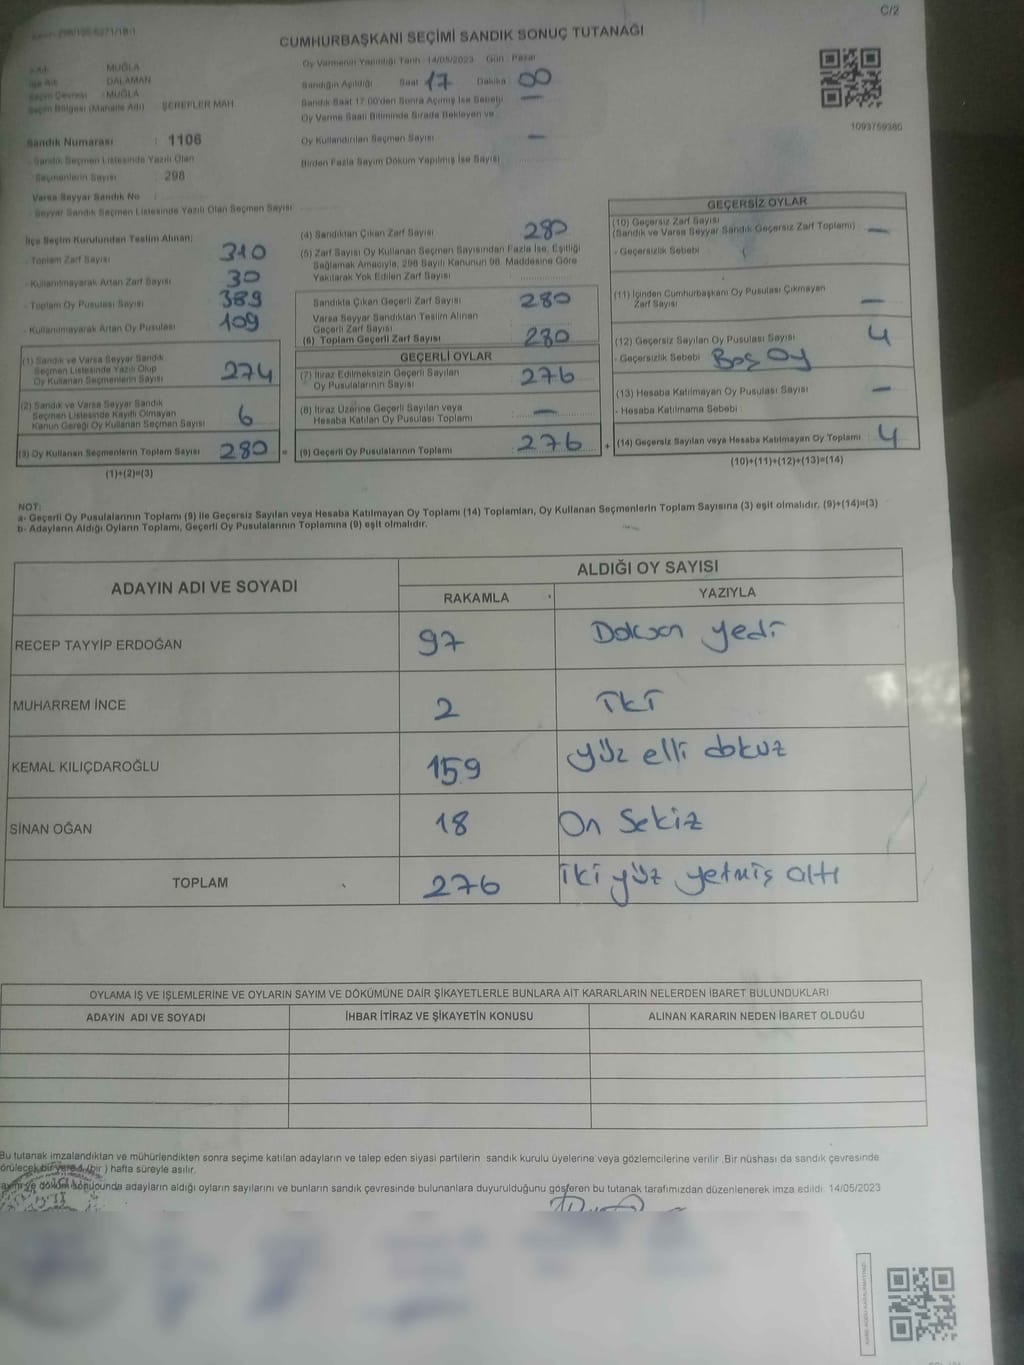 C/2
CUMHURBAŞKANI SEÇİMİ SANDIK SONUÇ TUTANAĞI
MUĞLA
DALAMAN
MUĞLA
Seçim Bölgesi (Mahalle Adı) : ŞEREFLER MAH.
Sandık Numarası : 1106
Sandık Seçmen Listesinde Yazılı Olan
Seçmenlerin Sayısı : 298
Varsa Seyyar Sandık No :
Seyyar Sandık Seçmen Listesinde Yazılı Olan Seçmen Sayısı
Oy Vermenin Yapıldığı Tarih :14/05/2023 Gün : Pazar
Sandığın Açıldığı Saat 17 Dakika 00
Sandık Saat 17:00'den Sonra Açılmış İse Sebebi —
Oy Verme Saati Bitiminde Sırada Bekleyen ve
Oy Kullandırılan Seçmen Sayısı —
Birden Fazla Sayım Döküm Yapılmış İse Sayısı
1093759385
İlçe Seçim Kurulundan Teslim Alınan;
- Toplam Zarf Sayısı 310
- Kullanılmayarak Artan Zarf Sayısı 30
- Toplam Oy Pusulası Sayısı 389
- Kullanılmayarak Artan Oy Pusulası 109
(1) Sandık ve Varsa Seyyar Sandık
Seçmen Listesinde Yazılı Olup
Oy Kullanan Seçmenlerin Sayısı 274
(2) Sandık ve Varsa Seyyar Sandık
Seçmen Listesinde Kayıtlı Olmayan
Kanun Gereği Oy Kullanan Seçmen Sayısı 6
(3) Oy Kullanan Seçmenlerin Toplam Sayısı 280 =
(1)+(2)=(3)
(4) Sandıktan Çıkan Zarf Sayısı 280
(5) Zarf Sayısı Oy Kullanan Seçmen Sayısından Fazla İse, Eşitliği
Sağlamak Amacıyla, 298 Sayılı Kanunun 98. Maddesine Göre
Yakılarak Yok Edilen Zarf Sayısı
Sandıkta Çıkan Geçerli Zarf Sayısı 280
Varsa Seyyar Sandıktan Teslim Alınan
Geçerli Zarf Sayısı
(6) Toplam Geçerli Zarf Sayısı 280
GEÇERLİ OYLAR
(7) İtiraz Edilmeksizin Geçerli Sayılan
Oy Pusulalarının Sayısı 276
(8) İtiraz Üzerine Geçerli Sayılan veya
Hesaba Katılan Oy Pusulası Toplamı —
(9) Geçerli Oy Pusulalarının Toplamı 276 +
GEÇERSİZ OYLAR
(10) Geçersiz Zarf Sayısı
(Sandık ve Varsa Seyyar Sandık Geçersiz Zarf Toplamı) —
- Geçersizlik Sebebi
(11) İçinden Cumhurbaşkanı Oy Pusulası Çıkmayan
Zarf Sayısı —
(12) Geçersiz Sayılan Oy Pusulası Sayısı 4
- Geçersizlik Sebebi Boş Oy
(13) Hesaba Katılmayan Oy Pusulası Sayısı —
- Hesaba Katılmama Sebebi
(14) Geçersiz Sayılan veya Hesaba Katılmayan Oy Toplamı 4
(10)+(11)+(12)+(13)=(14)
NOT:
a- Geçerli Oy Pusulalarının Toplamı (9) ile Geçersiz Sayılan veya Hesaba Katılmayan Oy Toplamı (14) Toplamları, Oy Kullanan Seçmenlerin Toplam Sayısına (3) eşit olmalıdır. (9)+(14)=(3)
b- Adayların Aldığı Oyların Toplamı, Geçerli Oy Pusulalarının Toplamına (9) eşit olmalıdır.
ADAYIN ADI VE SOYADI
ALDIĞI OY SAYISI
RAKAMLA YAZIYLA
RECEP TAYYİP ERDOĞAN 97 Doksan yedi
MUHARREM İNCE 2 İki
KEMAL KILIÇDAROĞLU 159 yüz elli dokuz
SİNAN OĞAN 18 On Sekiz
TOPLAM 276 iki yüz yetmiş altı
OYLAMA İŞ VE İŞLEMLERİNE VE OYLARIN SAYIM VE DÖKÜMÜNE DAİR ŞİKAYETLERLE BUNLARA AİT KARARLARIN NELERDEN İBARET BULUNDUKLARI
ADAYIN ADI VE SOYADI İHBAR İTİRAZ VE ŞİKAYETİN KONUSU ALINAN KARARIN NEDEN İBARET OLDUĞU
Bu tutanak imzalandıktan ve mühürlendikten sonra seçime katılan adayların ve talep eden siyasi partilerin sandık kurulu üyelerine veya gözlemcilerine verilir .Bir nüshası da sandık çevresinde
görülecek bir yere 1 (bir ) hafta süreyle asılır.
Sayım ve döküm sonucunda adayların aldığı oyların sayılarını ve bunların sandık çevresinde bulunanlara duyurulduğunu gösteren bu tutanak tarafımızdan düzenlenerek imza edildi. 14/05/2023